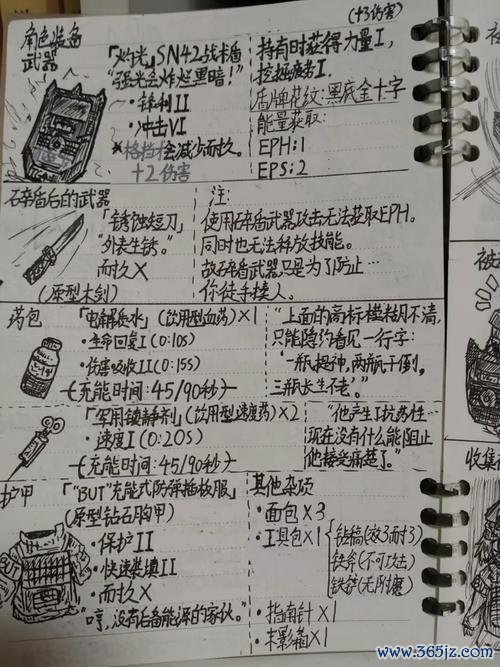 (+3伤害)
角色装备
武器
「灼光」SN42战术盾
"强光会炸烂黑暗!"
·锋利II
·冲击VI
·格挡会减少耐久。
+2伤害
持有时获得力量I,
挖掘疲劳I.
盾牌花纹:黑底金十字
能量获取:
EPH:1
EPS:2
碎盾后的武器
「锈蚀短刀」
"外表生锈。"
耐久X
(原型木剑)
注:
使用碎盾武器攻击无法获取EPH。
同时也无法释放技能。
故碎盾武器只是为了防止…
你徒手揍人。
药包
(饮用型血药)×1
·生命回复I(0:10s)
·伤害吸收II(0:15s)
(充能时间:45/90秒)
"上面的商标模糊不清,
只能隐约看见一行字:
'一瓶提神,两瓶干倒,
三瓶长生不老'。"
「军用镇静剂」(饮用型速度药)×2
·速度I(0:20s)
(充能时间:45/90秒)
"他产生了抗药性…
现在没有什么能阻止
他接受痛楚了。"
护甲
「"BUT"充能式防弹插板服」
(原型钻石胸甲)
·保护II
·快速装填II
·耐久X
"哼,没有后备能源的家伙。"
其他杂项
·面包×3
·工具包×1
铁镐(效3耐3)
铁斧(不可攻击)
·指南针×1
·末影箱×1
收集
www.365jz.com